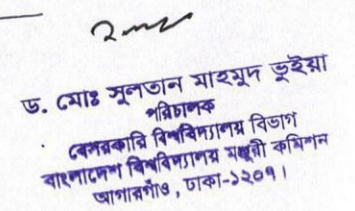 ড. মোঃ সুলতান মাহমুদ ভূইয়া
পরিচালক
বেসরকারি বিশ্ববিদ্যালয় বিভাগ
বাংলাদেশ বিশ্ববিদ্যালয় মঞ্জুরী কমিশন
আগারগাঁও, ঢাকা-১২০৭।